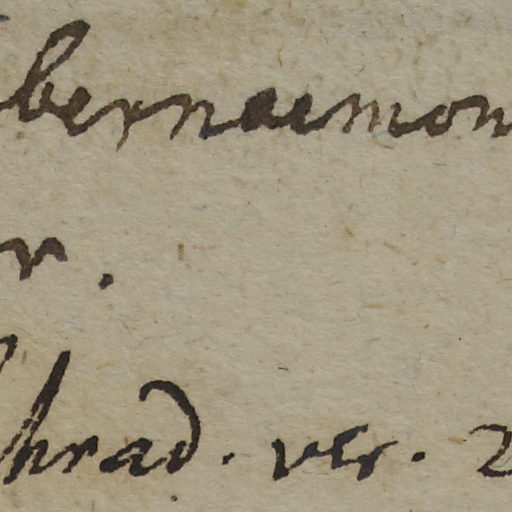 bernaemon
r.
hrad. ver. 2